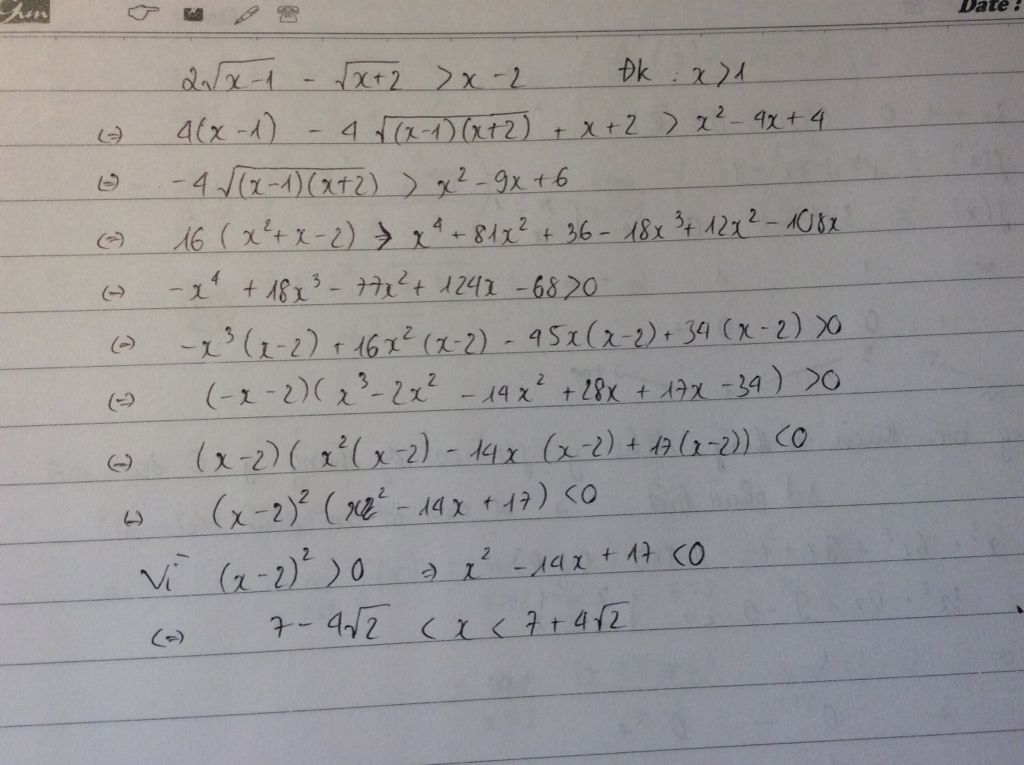 Date :
2√(x-1) - √(x+2) > x - 2 Đk : x > 1
(=) 4(x - 1) - 4 √((x-1)(x+2)) + x + 2 > x² - 4x + 4
(=) -4 √((x-1)(x+2)) > x² - 9x + 6
(=) 16 (x² + x - 2) > x⁴ + 81x² + 36 - 18x³ + 12x² - 108x
(=) -x⁴ + 18x³ - 77x² + 124x - 68 > 0
(=) -x³(x-2) + 16x²(x-2) - 45x(x-2) + 34(x-2) > 0
(=) (-x-2)(x³ - 2x² - 14x² + 28x + 17x - 34) > 0
(=) (x-2)(x²(x-2) - 14x (x-2) + 17(x-2)) < 0
(=) (x-2)² (x² - 14x + 17) < 0
Vì (x-2)² > 0 => x² - 14x + 17 < 0
(=) 7 - 4√2 < x < 7 + 4√2